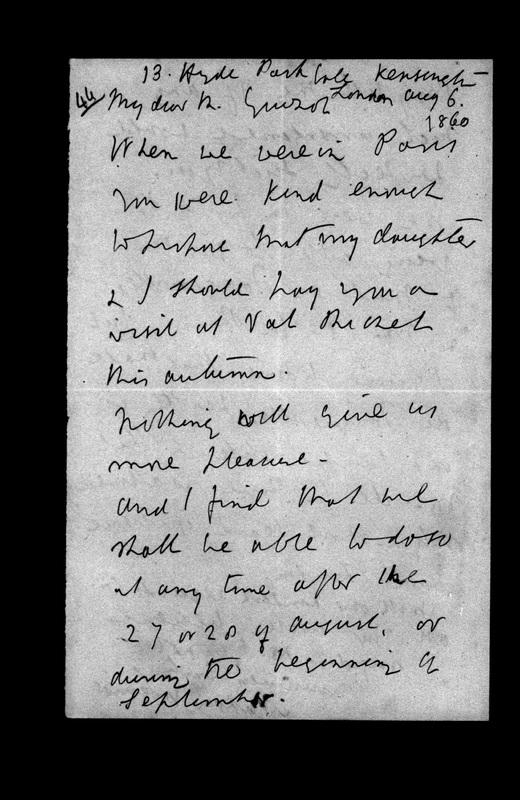 13. Hyde Park Gate Kensington
44 My dear M. Guizot London Aug 6.
1860
When we were in Paris
you were kind enough
to propose that my daughter
& I should pay you a
visit at Val Richer
this autumn.
Nothing will give us
more pleasure -
and I find that we
shall be able to do so
at any time after the
27 or 28 of August, or
during the beginning of
September.